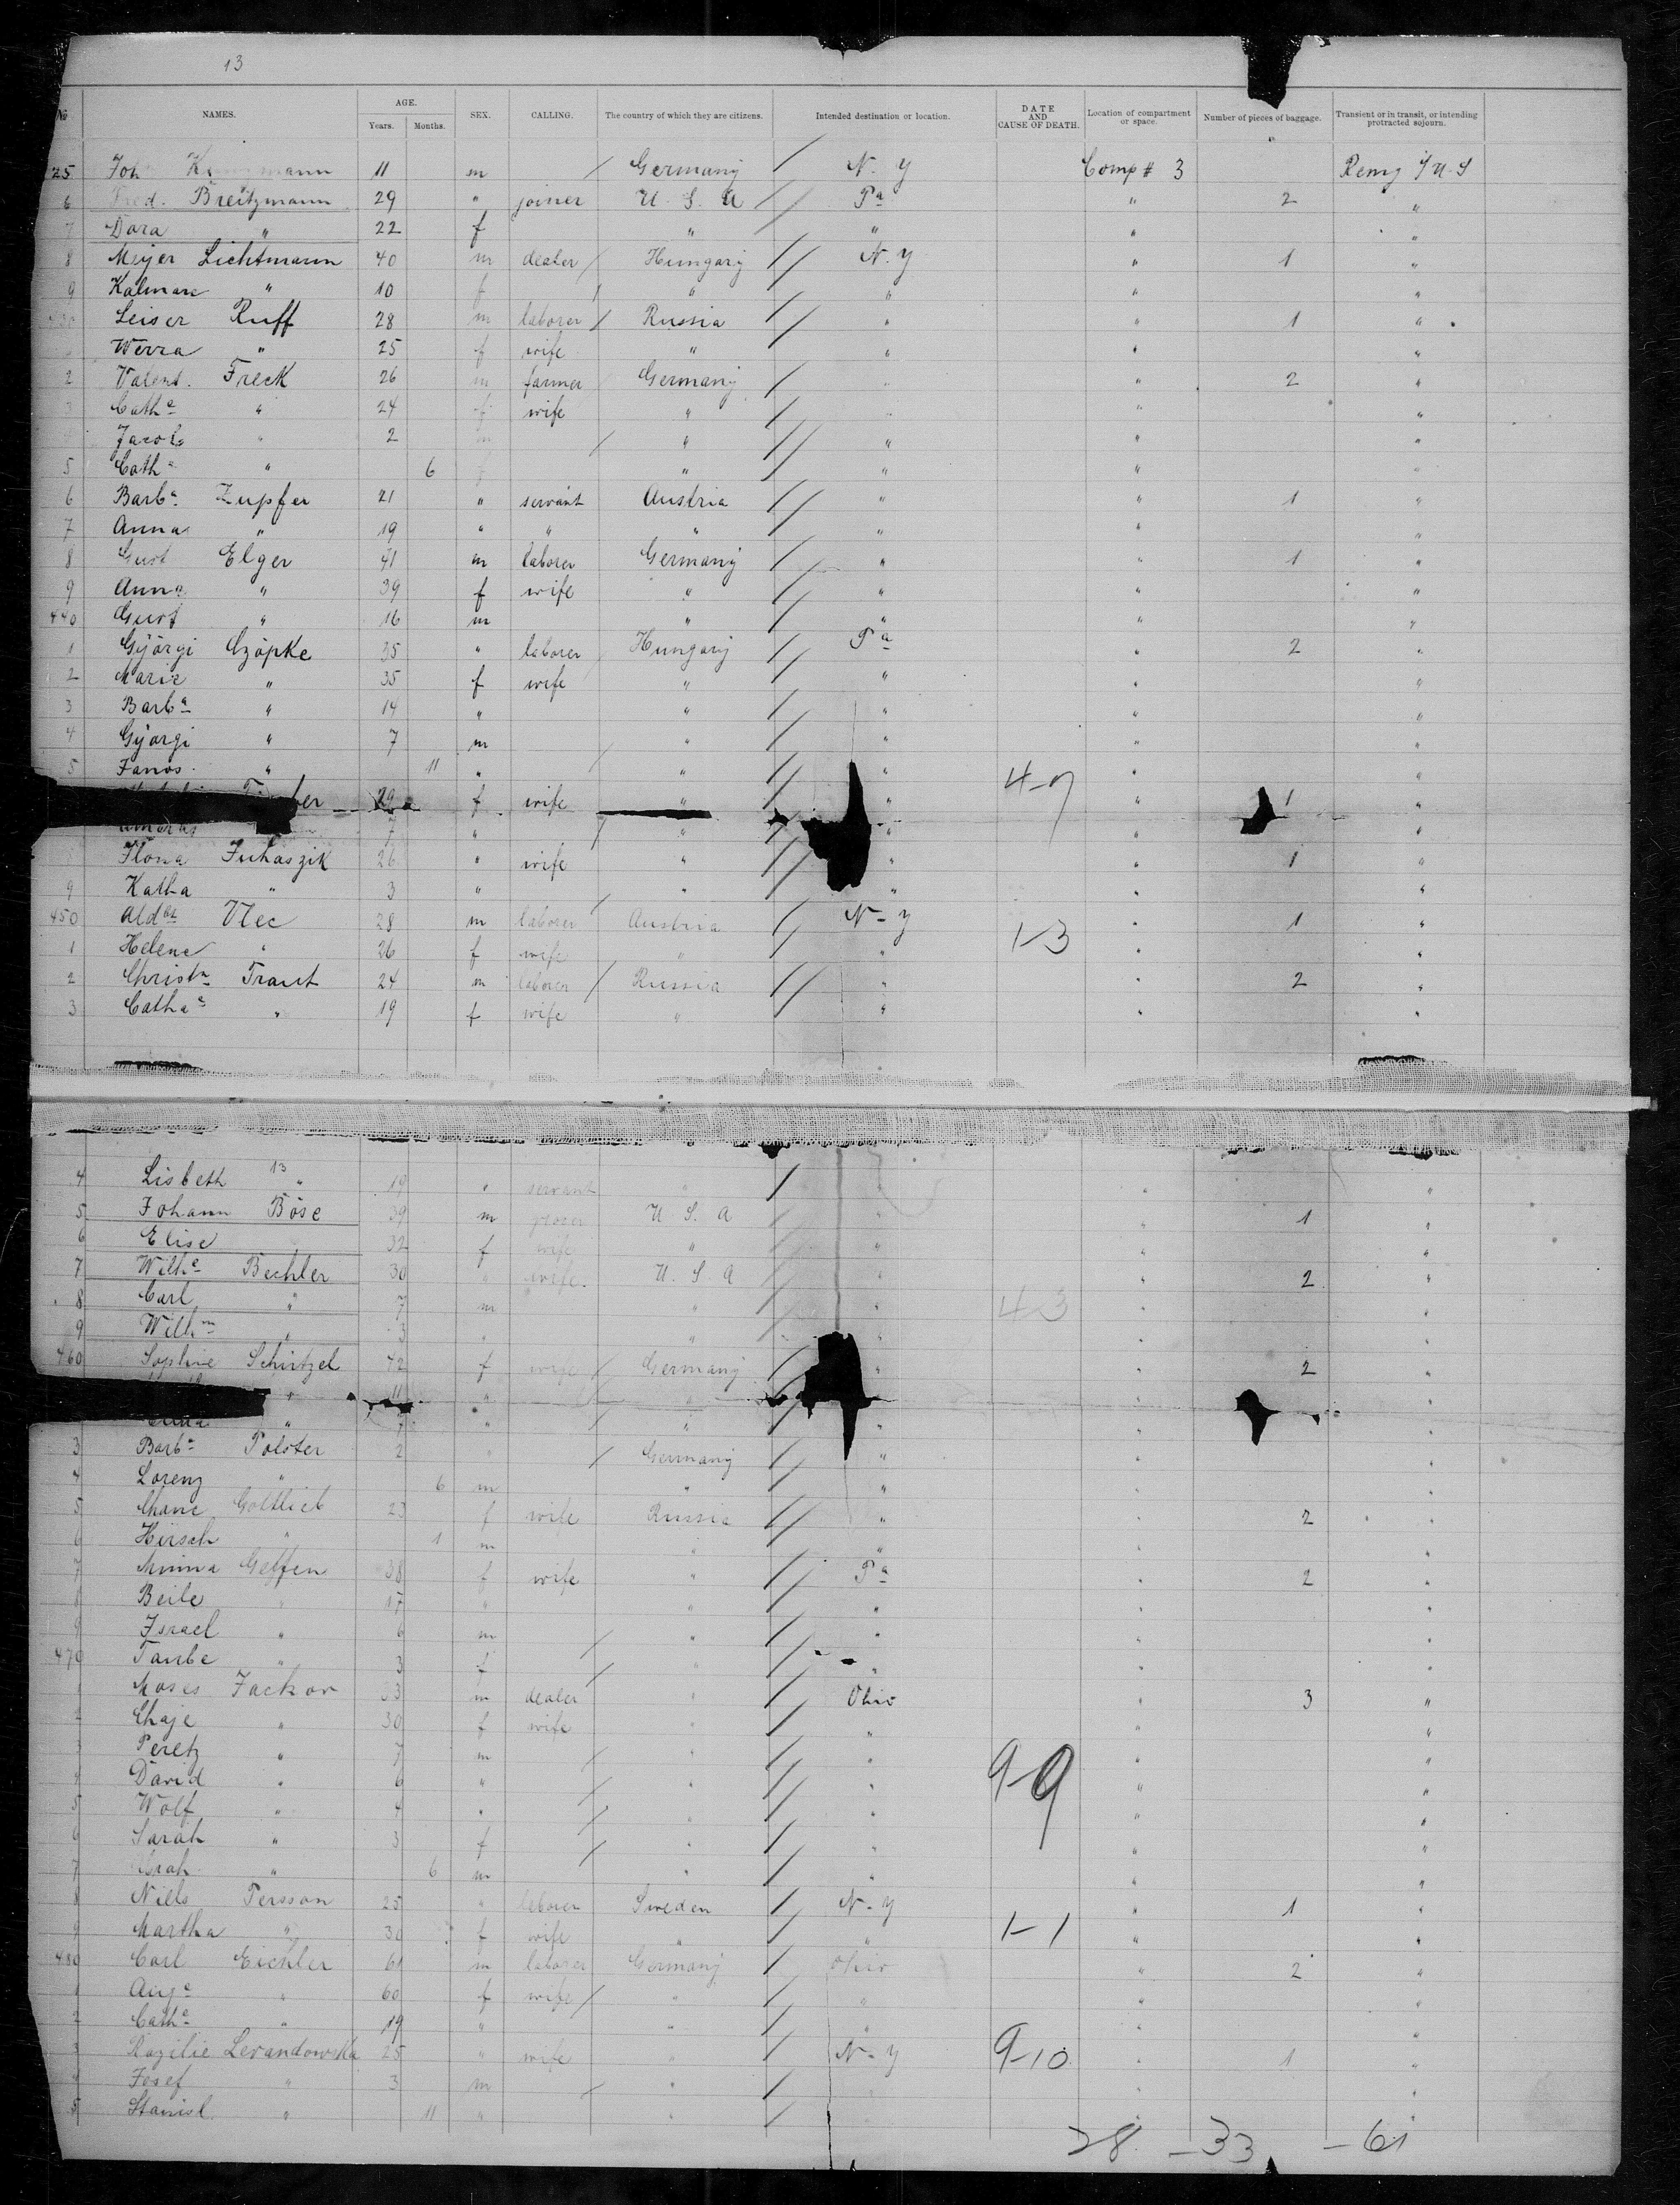 13
No NAMES. AGE. Years. Months. SEX. CALLING. The country of which they are citizens. Intended destination or location. DATE AND CAUSE OF DEATH. Location of compartment or space. Number of pieces of baggage. Transient or in transit, or intending protracted sojourn.
25 Joh 11 m / Germany / N. Y Comp # 3 Remg i/U.S
6 Fred. Breitzmann 29 " joiner U. S. A / Pa " 2 "
7 Dora " 22 f " " " "
8 Meijer Lichtmann 40 m dealer / Hungary // N. Y " 1 "
9 Kalmare " 10 f / " // " " "
Leiser Ruff 28 m laborer / Russia // " " 1 "
Werra " 25 f wife " // " " "
2 Valent. Freck 26 m farmer Germany / " " 2 "
3 Catha " 24 f wife " / " " "
Jacob " 2 m / " // " " "
5 Catha " 6 f " // " " "
6 Barba Zupfer 21 " servant Austria // " " 1 "
7 Anna " 19 " " " // " " "
8 Gust Elger 41 m laborer Germany / " " 1 "
9 Anna " 39 f wife " / " " "
440 Gust " 16 m " / " " "
1 Györgi Czöpke 35 " laborer Hungary // Pa " 2 "
2 Marie " 35 f wife " // " " "
3 Barba " 14 " " // " " "
4 Györgi " 7 m " // " " "
5 Janos " 11 " / " // " 4-7 " "
ber 29 f wife " // " " 1 "
7 " / " // " " "
Ilona Juhaszik 26 " wife " // " " 1 "
9 Katha " 3 " / " // " " "
450 Aldar Vlec 28 m laborer Austria / N-Y 1-3 " 1 "
1 Helene " 26 f wife " / " " "
2 Christn Traut 24 m laborer / Russia // " " 2 "
3 Catha " 19 f wife " // " " "
13
4 Lisbeth " 19 " servant " / " " "
5 Johann Böse 39 m U. S. A " " 1 "
6 Elise 32 f wife " " " "
7 Wilhe Bechler 30 " wife. U. S A " 2 "
8 Carl " 7 m " " 4-3 " "
9 Wilhm " 3 " " " " "
460 Sophie Schirtzel 42 f wife / Germany / " " 2 "
" 11 " / " / " " "
" 7 " / " / " " "
3 Barba Polster 2 " / Germany / " " "
4 Lorenz " 6 m " / " " "
5 Chane Gottlieb 23 f wife Russia // " " 2 "
6 Hirsch " 1 m " // " " "
7 Minna Gelfen 38 f wife " // Pa " 2 "
8 Beile " 17 " " // " " "
9 Israel " 6 m / " // " " "
470 Taube " 3 f / " // " " "
1 Moses Jackov 33 m dealer " // Ohio " 3 "
2 Chaje " 30 f wife " // " " "
3 Peretz " 7 m / " // " 9-9 " "
4 David " 6 " / " // " " "
5 Wolf " 4 " / " // " " "
6 Sarah " 3 f / " // " " "
7 " 6 m " // " " "
8 Niels Persson 25 " laborer Sweden / N-Y " 1 "
9 Martha " 30 f wife " / " 1-1 " "
480 Carl Eichler 61 m laborer Germany / Ohio " 2 "
1 Auge " 60 f wife / " / " " "
2 Cathe " 19 " " / " " "
3 Razilie Levandowska 25 " wife " / N-Y 9-10 " 1 "
4 Josef " 3 m / " / " "
5 Stanisl. " 11 " " / " "
28 - 33 - 61